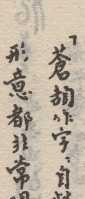 「蒼頡作字、自
形意都非常明